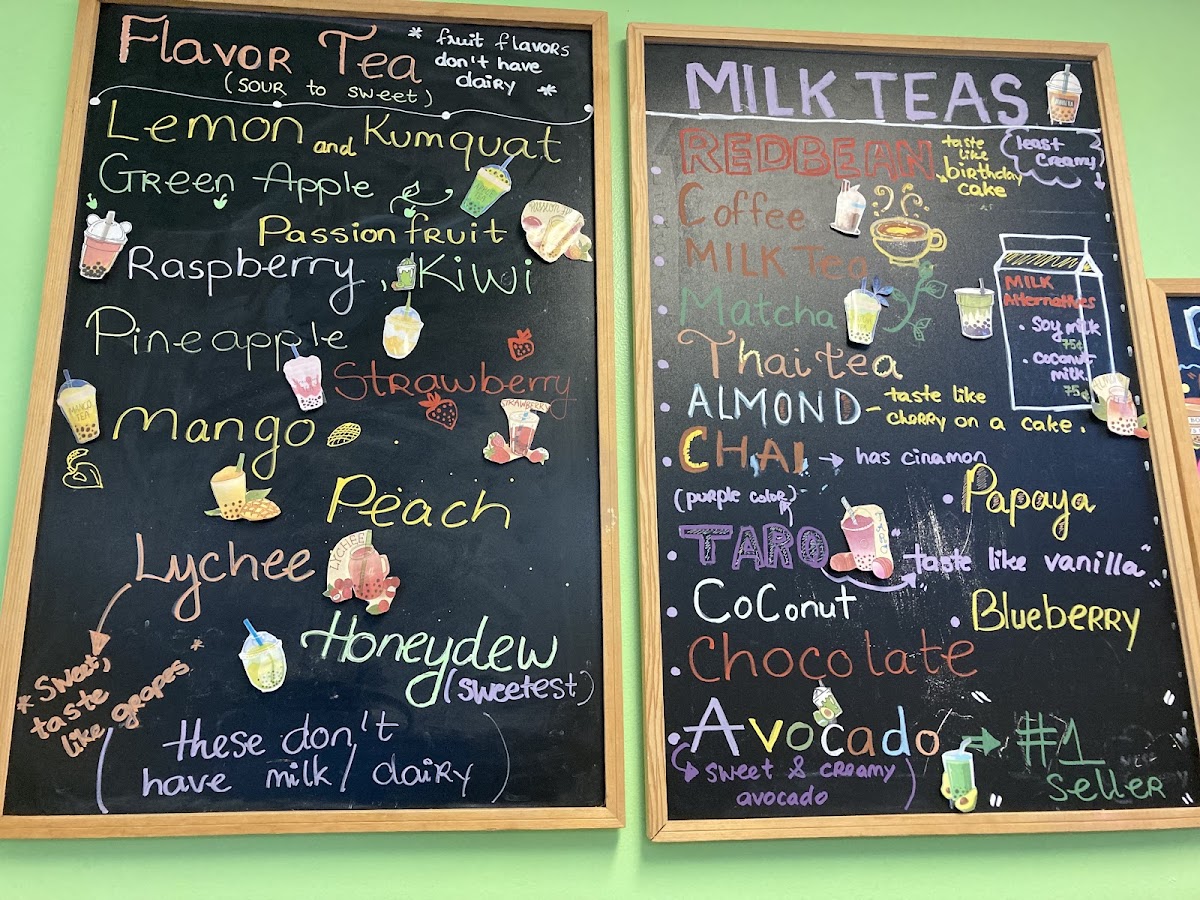 Flavor Tea
(sour to sweet)
* fruit flavors
don't have
dairy *
Lemon and Kumquat
Green Apple
Passion fruit
Raspberry, Kiwi
Pineapple
Strawberry
STRAWBERRY
Mango
Peach
Lychee
LYCHEE
* Sweet,
taste
like grapes *
Honeydew
(sweetest)
(these don't
have milk/dairy)
MILK TEAS
REDBEAN
taste
like
birthday
cake
(least
creamy)
Coffee
MILK Tea
Matcha
Thai tea
ALMOND - taste like
cherry on a cake.
CHAI → has cinamon
MILK
Alternatives
• Soy milk
75¢
• coconut
milk.
75¢
(purple color)
• Papaya
TARO
TARO
"taste like vanilla"
• Coconut
• Blueberry
• Chocolate
• Avocado → #1
seller
sweet & creamy
avocado)